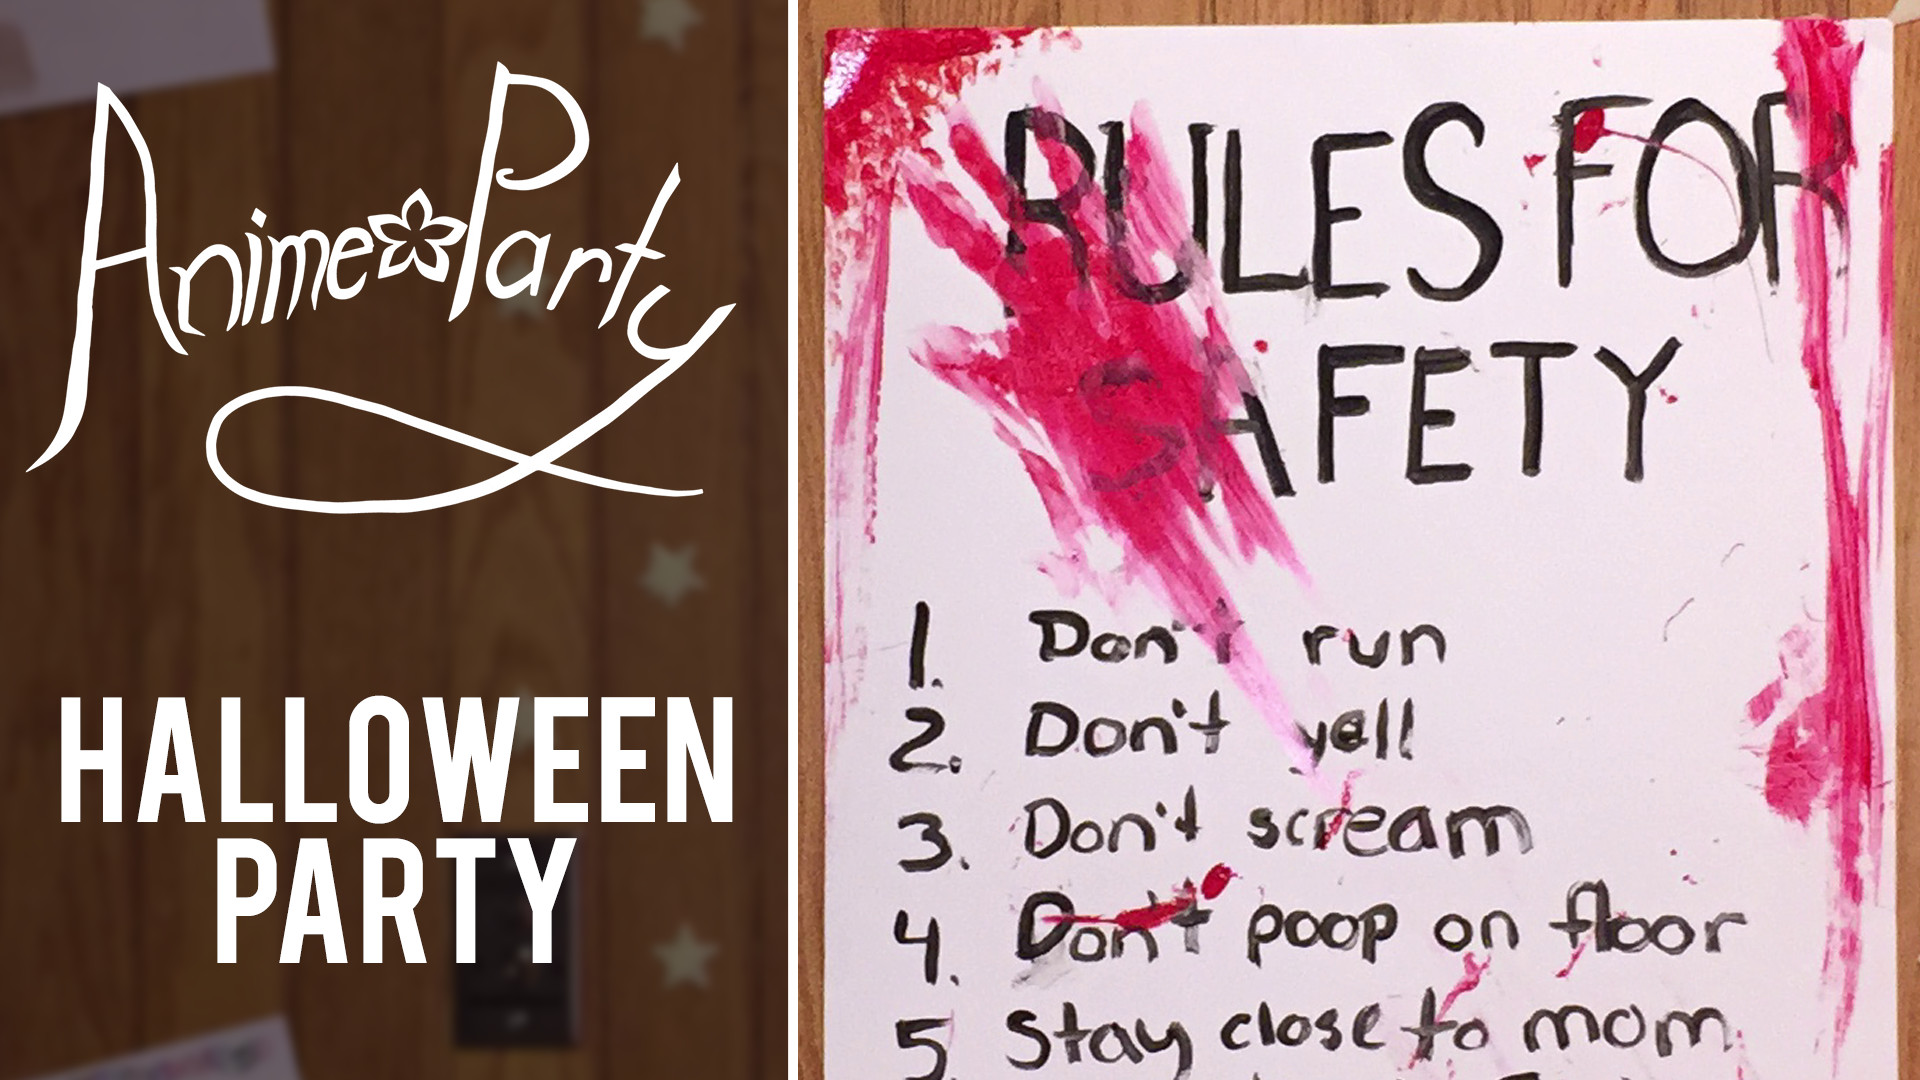 Anime Party
HALLOWEEN
PARTY
RULES FOR
SAFETY
1. Don't run
2. Don't yell
3. Don't scream
4. Don't poop on floor
5. Stay close to mom